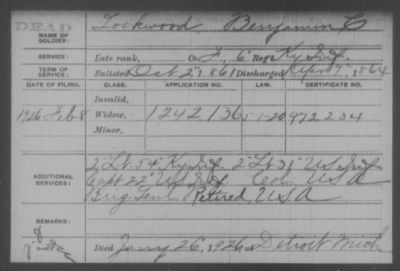 DEAD
NAME OF SOLDIER: Lockwood, Benjamin C
SERVICE: Late rank, Co. I, 6" Reg't Ky Inf.
TERM OF SERVICE: Enlisted Oct 2", 1861 Discharged 1864
DATE OF FILING. CLASS. APPLICATION NO. LAW. CERTIFICATE NO.
Invalid,
1926 Feb 8 Widow, 1242136 5-1-20 972234
Minor,
ADDITIONAL SERVICES: 2" Lt. 54" Ky Inf. 2" Lt 31" U.S. Inf
Capt 22" U.S. Inf. Col. U.S.A
Brig. Genl. Retired, U.S.A
REMARKS:
Died Jany 26, 1926 at Detroit Mich